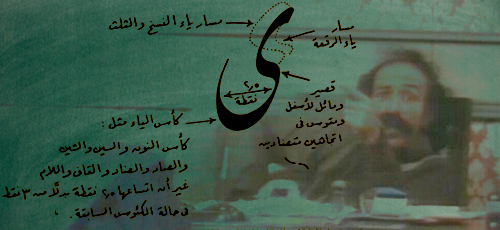 مسار ياء النسخ والثلث
مسار
ياء الرقعة
ى
٢٫٥
نقطة
قصير
ومائل لأسفل
ومقوس فى
اتجاهين متضادين
كأس الياء مثل :
كأس النون والسين والشين
والصاد والضاد والقاف واللام
غير أن اتساعها ٢٫٥ نقطة بدلًا من ٣ نقط
فى حالة الكئوس السابقة .